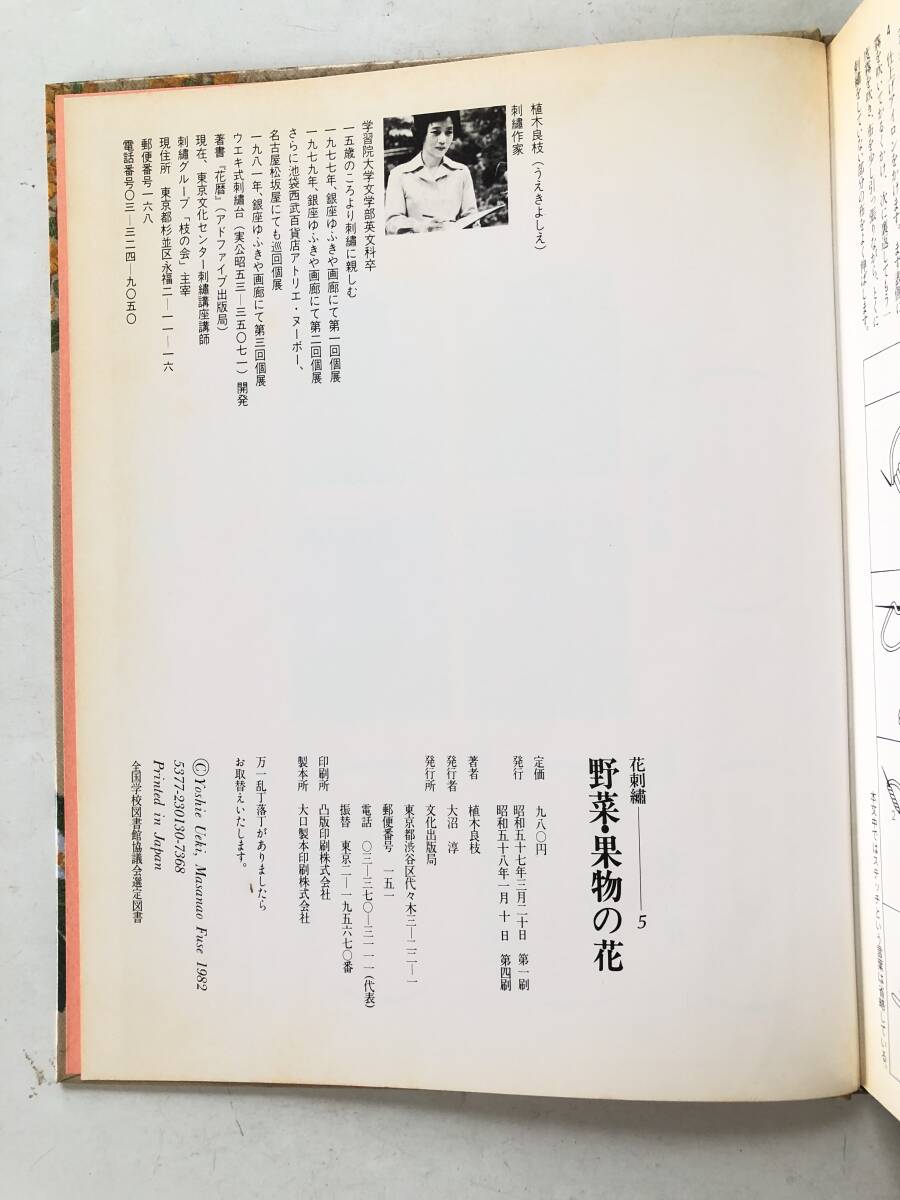 植木良枝（うえきよしえ）
刺繡作家
学習院大学文学部英文科卒
一五歳のころより刺繡に親しむ
一九七七年、銀座ゆふきや画廊にて第一回個展
一九七九年、銀座ゆふきや画廊にて第二回個展
さらに池袋西武百貨店アトリエ・ヌーボー、
名古屋松坂屋にても巡回個展
一九八一年、銀座ゆふきや画廊にて第三回個展
ウエキ式刺繡台（実公昭五三—三五〇七一）開発
著書『花暦』（アドファイブ出版局）
現在、東京文化センター刺繡講座講師
刺繡グループ「枝の会」主宰
現住所　東京都杉並区永福二—一一—一六
郵便番号一六八
電話番号〇三—三二四—九〇五〇
花刺繡——5
野菜・果物の花
定価　九八〇円
発行　昭和五十七年三月二十日　第一刷
昭和五十八年一月十日　第四刷
著者　植木良枝
発行者　大沼 淳
発行所　文化出版局
東京都渋谷区代々木三—二二—一
郵便番号　一五一
電話　〇三—三七〇—三一一一（代表）
振替　東京二—一九五六七〇番
印刷所　凸版印刷株式会社
製本所　大口製本印刷株式会社
万一乱丁落丁がありましたら
お取替えいたします。
©Yoshie Ueki, Masanao Fuse 1982
5377-230130-7368
Printed in Japan
全国学校図書館協議会選定図書